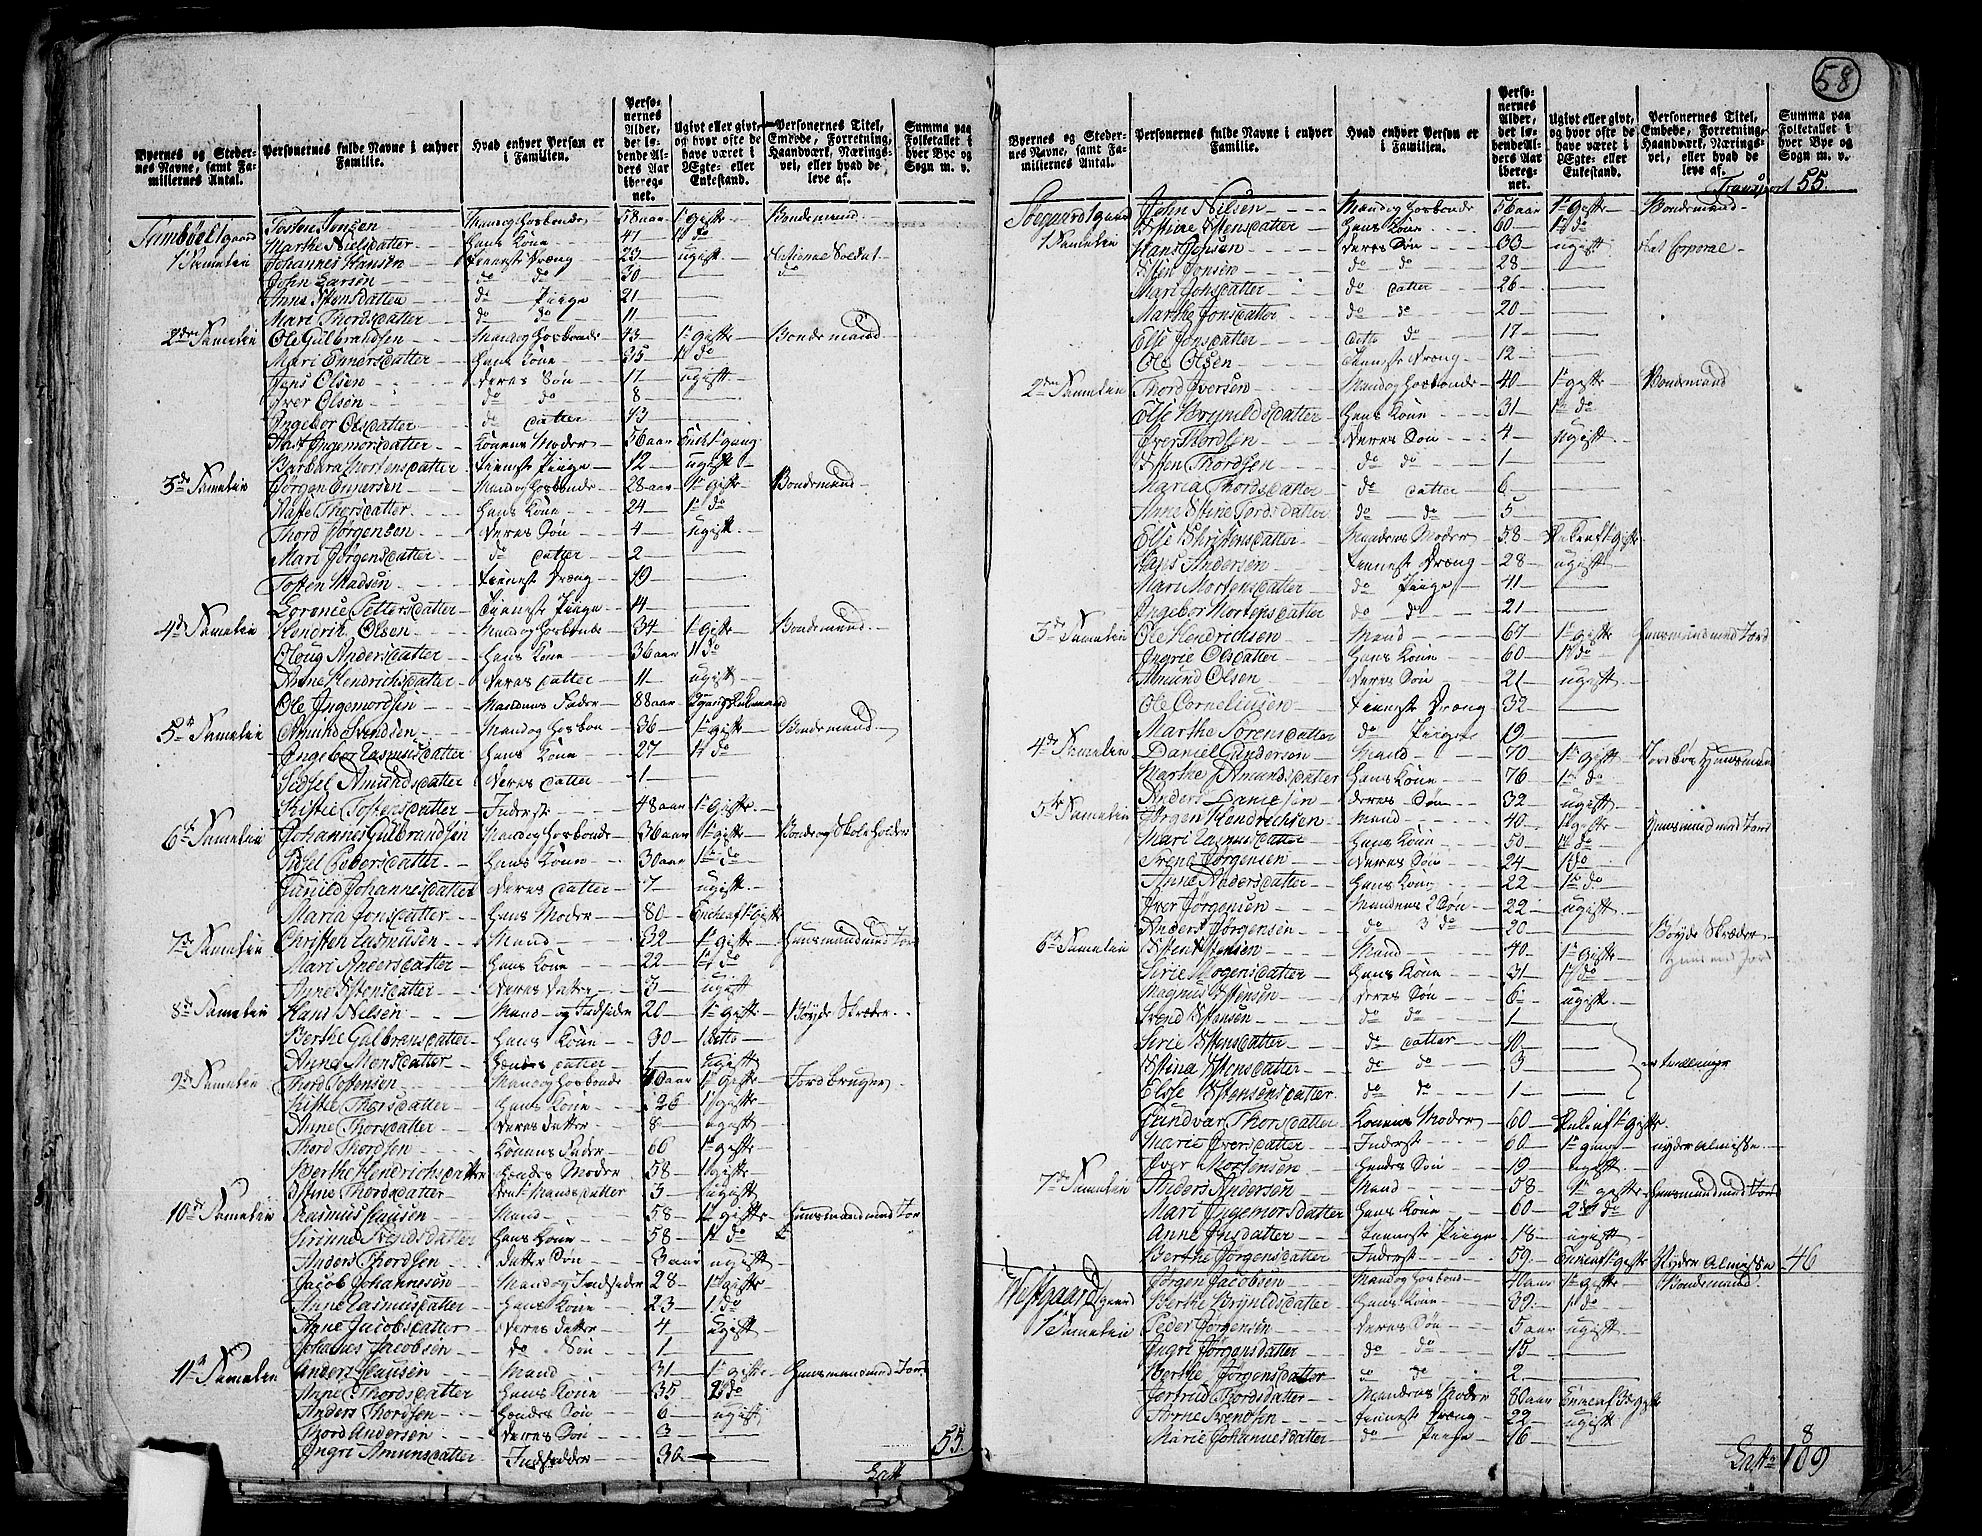 Byernes og Stedernes Navne, samt Familiernes Antal.
Personernes fulde Navne i enhver Familie.
Hvad enhver Person er i Familien.
Personernes Alder, det løbende Alders Aar iberegnet.
Ugivt eller givt, og hvor ofte de have været i Ægte- eller Enkestand.
Personernes Titel, Embede, Forretning, Haandværk, Næringsvei, eller hvad de leve af.
Summa paa Folketallet i hver Bye og Sogn m. v.
Tosten Jensen Mand og Hosbonde 58 aar 1te gifte Bondemand
Marthe Nielsdatter Hans Kone 41 1te do
1te Familie Johannes Hansen Tieneste Dræng 23 ugift National Soldat
John Larsen do do 30 do
Anne Istensdatter do Piige 21
Mari Thordsdatter do do 11
2den Familie Ole Gulbrandsen Mand og Hosbonde 43 1te gifte Bondemand
Mari Enersdatter Hans Kone 35 1te do
Jens Olsen deres Søn 17 ugift
Iver Olsen do do 8
Ingebor Olsdatter do datter 13
Ingemorsdatter Konens Moder 56 aar
Barbara Mortensdatter Tieneste Piige 12 ugift
3de Familie Jørgen Enersen Mand og Hosbonde 28 aar 1te gifte Bondemand
Thorsdatter Hans Kone 24 1te do
Thord Jørgensen deres Søn 4 ugift
Mari Jørgensdatter do datter 2
Tosten Madsen Tieneste Dræng 19
Lorence Pettersdatter Tieneste Piige 14
4de Familie Hendrik Olsen Mand og Hosbonde 34 1te gifte Bondemand
Oloug Andersdatter Hans Kone 36 aar 1te do
Anne Hendrichsdatter deres datter 11 ugift
Ole Ingemordsen Mandens Fader 88 aar
5te Familie Amund Svendsen Mand og Hosbon 36 1te gifte Bondemand
Ingebor Rasmusdatter Hans Kone 27 1te do
Sidsel Amundsdatter deres datter 1
Kirstie Tostensdatter Inderst 48 aar 1te gifte
6te Familie Johannes Gulbrandsen Mand og Hosbonde 36 aar 1te gifte Bonde og Skoleholder
Sidsel Pedersdatter Hans Kone 30 aar 1te do
Gunild Johannesdatter deres datter 7 ugift
Maria Jonsdatter Hans Moder 80
7de Familie Christen Rasmusen Mand 32 1te gifte Huusmand med Jord
Mari Andersdatter Hans Kone 22 1te do
Anne Istensdatter deres datter 3 ugift
8de Familie Hans Nilsen Mand og Indsider 20 1te gifte Bøyde Skræder
Berthe Gulbrensdatter Hans Kone 30 1 ditto
Anne Monsdatter Hendes datter 1 ugift
9de Familie Thord Tostensen Mand og Hosbonde 40 aar 1te gifte Jordbruger
Kirstie Thorsdatter Hans Kone 26 1 gifte
Anne Thorsdatter deres datter 8 ugift
Thord Thordsen Konens Fader 66 1te gifte
Berthe Hendrichsdatter Hendes Moder 58 1 gifte
Istine Thordsdatter datter 3 ugift
10de Familie Rasmus Hansen Mand 58 1te gifte Huusmand med Jor
Sirinne Svendsdatter Hans Kone 58 1te do
Anders Thordsen datter Søn 3 aar ugift
Jacob Johannesen Mand og Indsider 28 1te gifte
Anne Rasmusdatter Hans Kone 23 1 do
Anne Jacobsdatter deres datter 4 ugift
Johanes Jacobsen do Søn 1
11te Familie Anders Hansen Mand 31 1te gifte Huusmand med Jor
Anne Thordsdatter Hans Kone 35 2 do
Anders Thordsen Hendes Søn 6 ugift
Thord Andersen deres Søn 3
Ingri Amunsdatter Indsidder 30
55
Latt
58
Byernes og Stedernes Navne, samt Familiernes Antal.
Personernes fulde Navne i enhver Familie.
Hvad enhver Person er i Familien.
Personernes Alder, det løbende Alders Aar iberegnet.
Ugivt eller givt, og hvor ofte de have været i Ægte- eller Enkestand.
Personernes Titel, Embede, Forretning, Haandværk, Næringsvei, eller hvad de leve af.
Summa paa Folketallet i hver Bye og Sogn m. v.
Transport 55
John Nilsen Mand og Hosbonde 56 aar 1te gifte Bondemand
1 Familie Istine Istensdatter Hans Kone 60 1te do
Hans Jonsen deres Søn 33 ugift
Isten Jonsen do do 28
Mari Jonsdatter do datter 26
Marthe Jonsdatter do do 20
Else Jonsdatter ditto do 17
Ole Olsen Tieneste Dræng 12
2den Familie Thord Iversen Mand og Hosbonde 40 1te gifte Bondemand
Else Bryneldsdatter Hans Kone 31 1te do
Iver Thordsen deres Søn 4 ugift
Isten Thordsen do do 1
Maria Thordsdatter do datter 6
Anne Istine Tordsdatter do do 5
Else Christensdatter Mandens Moder 58
Andersen Tieneste Dræng 28 ugift
Mari Mortensdatter do Piige 41
Ingebor Mortensdatter do do 21
3de Familie Ole Hendrichsen Mand 67 1te gifte Huusmand med Jord
Ingrie Olsdatter Hans Kone 60 1te do
Amund Olsen deres Søn 21 ugift
Ole Corneliusen Tieneste Dræng 32
Marthe Sørensdatter do Piige 19
4de Familie Daniel Gundersen Mand 70 1te gifte Huusmand
Marthe Amundsdatter Hans Kone 76 1te do
Anders Danielsen deres Søn 32 ugift
5te Familie Jørgen Hendrichsen Mand 40 1te gifte Huusmand med Jord
Mari Rasmusdatter Hans Kone 50 1te do
Svend Jørgensen deres Søn 24 1te do
Anne Andersdatter Hans Kone 22 1te do
Iver Jørgensen Mandens 2 Søn 22 ugift
Anders Jørgensen do 3 do 20
6te Familie Isten Istensen Mand 40 1te gifte Bøyde Skræder
Serie Mogensdatter Hans Kone 31 1te do
Magnus Istensen deres Søn 6 ugift
Svend Istensen do do 1
Serie Istensdatter do datter 10
Istina Istensdatter do do 3
Else Istensensdatter do do 1
er tvillinge
Gundvar Thorsdatter Konens Moder 60
Marie Iversdatter Inderst 60 nyder Almisse
Iver Mortensen Hendes Søn 19 ugift
7de Familie Anders Andersen Mand 58 1te gifte Huusmand med Jord
Mari Ingemorsdatter Hans Kone 60 2 do
Anne Jnsdatter Tieneste Piige 18 ugift
Berthe Jørgensdatter Inderst 59 Nyder Almisse 46
Westgaard gaard Jørgen Jacobsen Mand og Hosbond 40 aar 1te gifte Bondemand
Berthe Bryneldsdatter Hans Kone 39 1te do
1te Familie Peder Jørgensen deres Søn 5 aar ugift
Ingri Jørgensdatter do do 15
Berthe Jørgensdatter do do 2
Gertrud Thordsdatter Mandens Moder 80 aar
Arne Svendsen Tieneste Dræng 22 ugift
Marie Johannesdatter do Piige 16
8
Latt 109